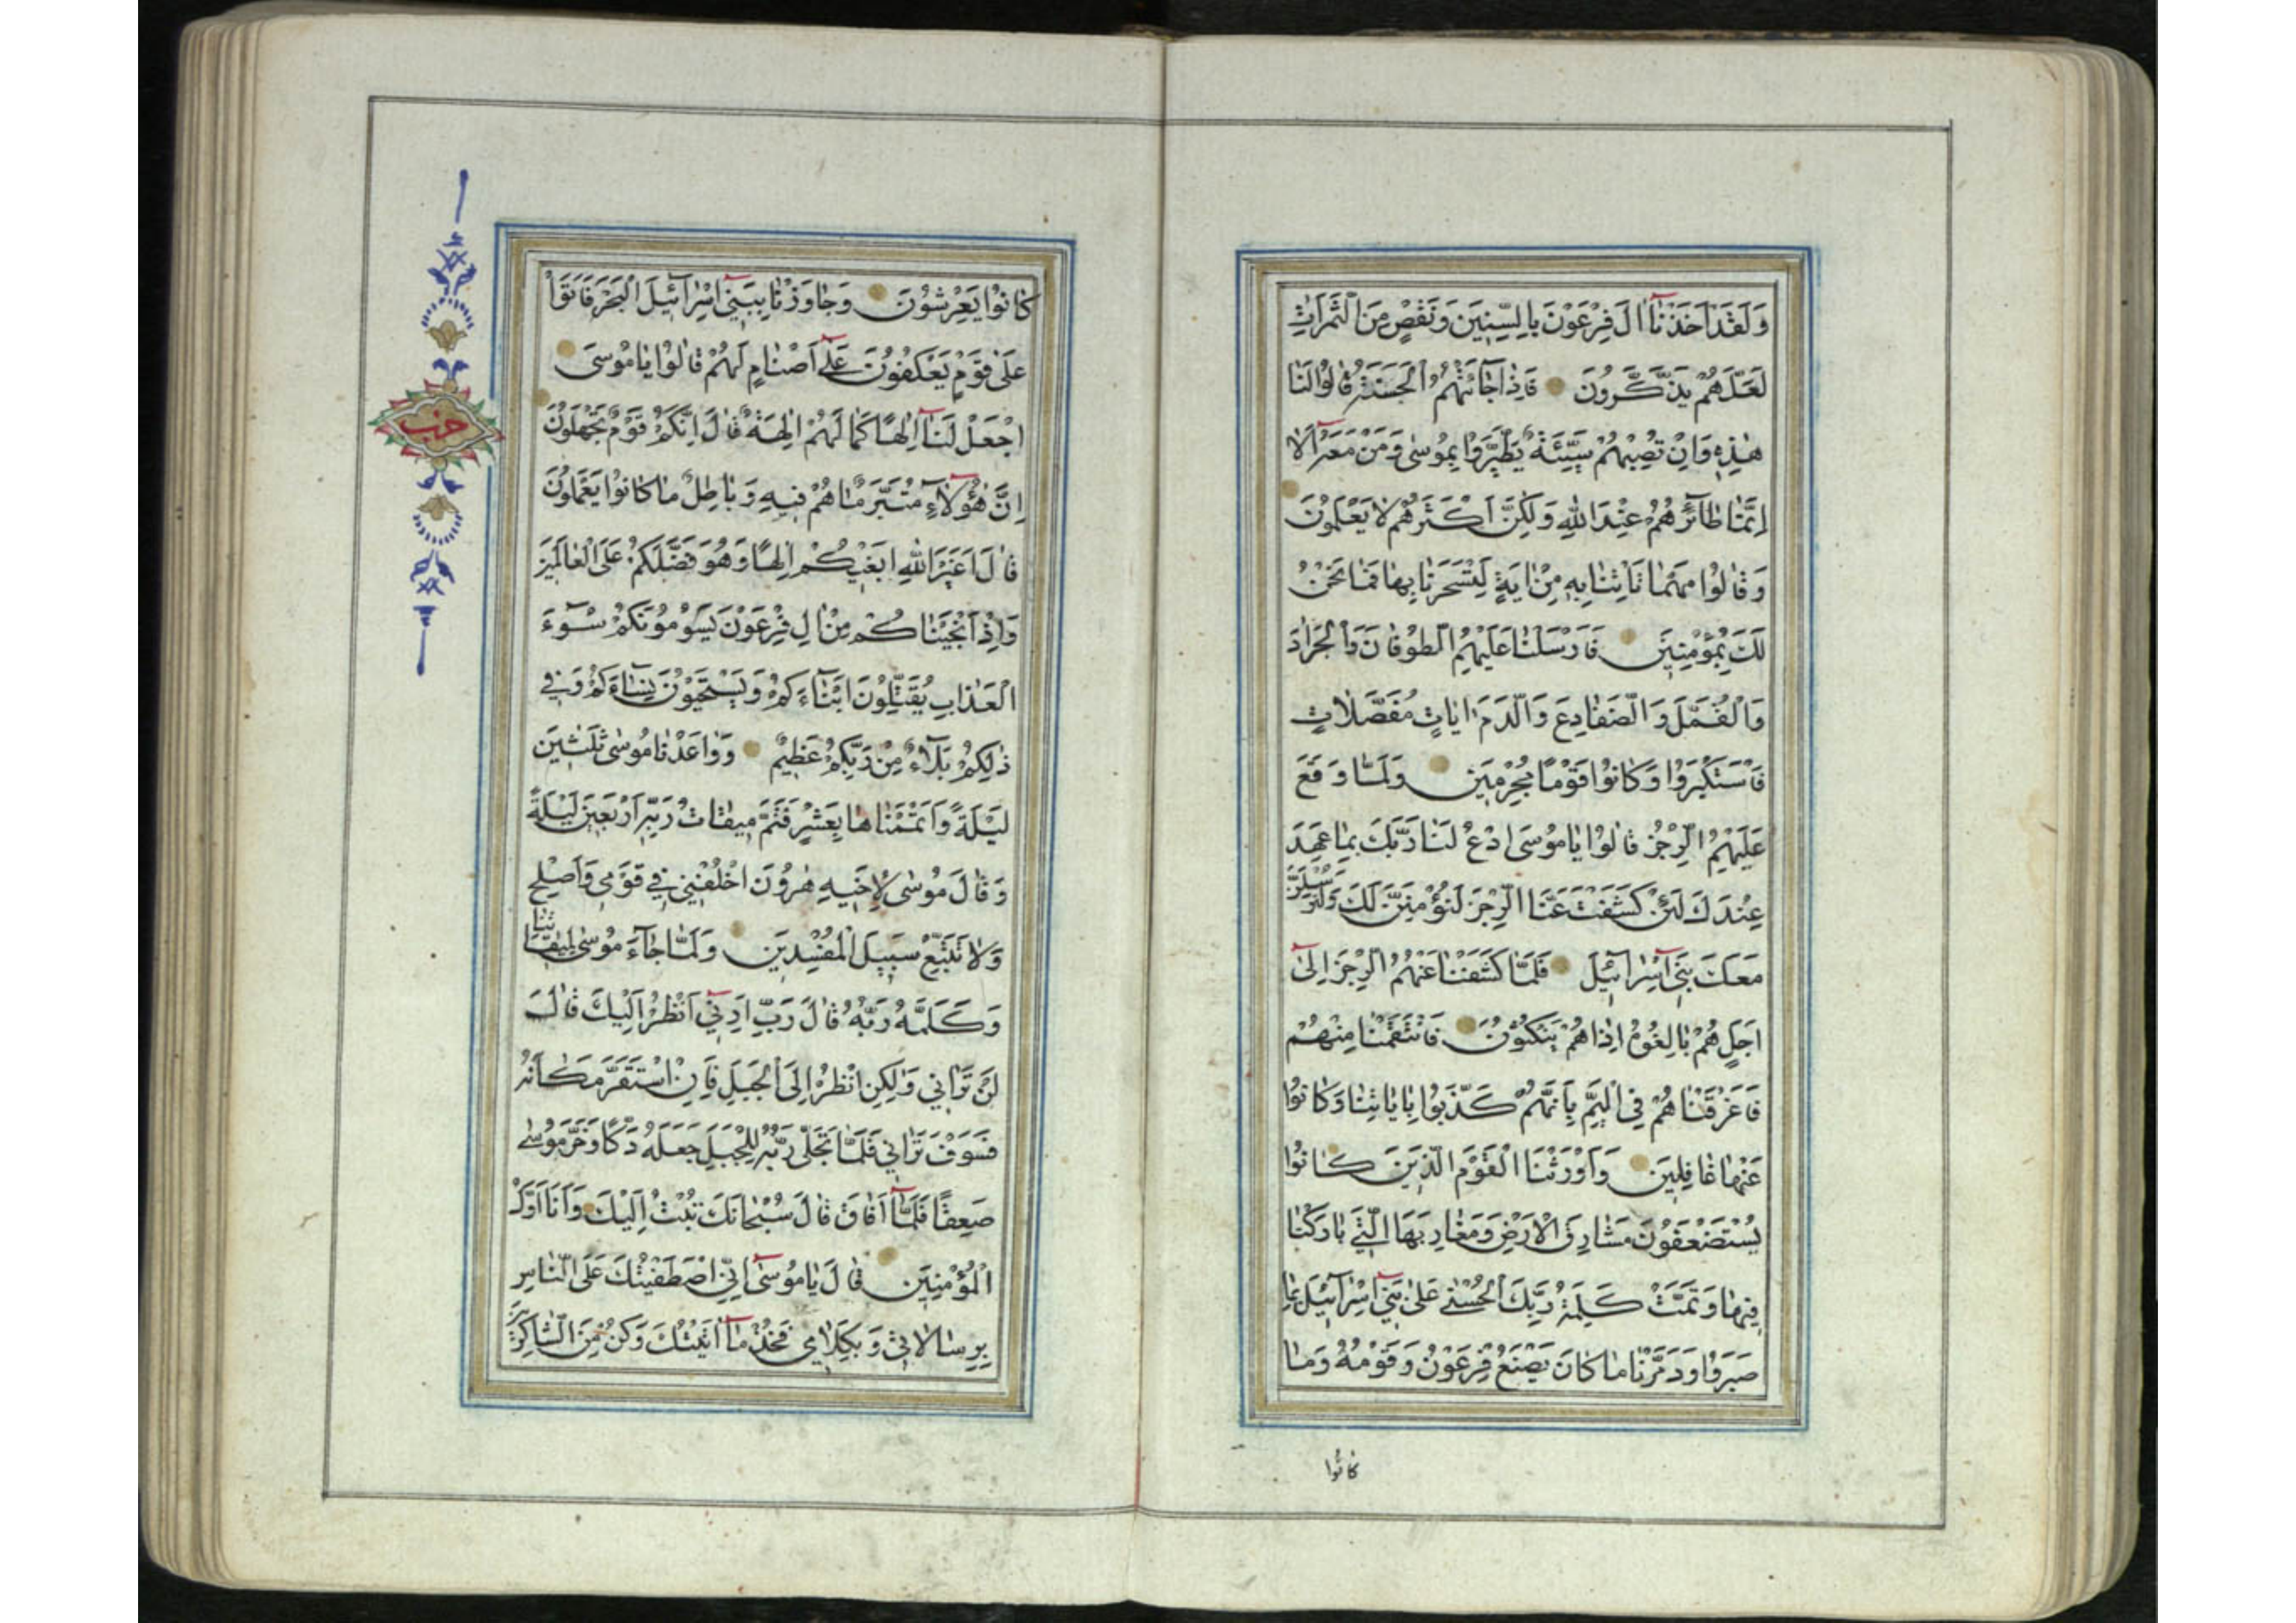 وَلَقَدْ اَخَذْنَآ اٰلَ فِرْعَوْنَ بِالسِّنٖينَ وَنَقْصٍ مِنَ الثَّمَرَاتِ
لَعَلَّهُمْ يَذَّكَّرُونَ فَاِذَا جَآئَتْهُمُ الْحَسَنَةُ قٰالُوا لَنٰا
هٰذِهٖ وَاِنْ تُصِبْهُمْ سَيِّئَةٌ يَطَّيَّرُوا بِمُوسٰى وَمَنْ مَعَهُٓ اَلٰا
اِنَّمٰا طٰآئِرُهُمْ عِنْدَ اللّٰهِ وَلٰكِنَّ اَكْثَرَهُمْ لٰا يَعْلَمُونَ
وَقٰالُوا مَهْمٰا تَاْتِنٰا بِهٖ مِنْ اٰيَةٍ لِتَسْحَرَنٰا بِهٰا فَمٰا نَحْنُ
لَكَ بِمُؤْمِنٖينَ فَاَرْسَلْنٰا عَلَيْهِمُ الطُّوفٰانَ وَالْجَرٰادَ
وَالْقُمَّلَ وَالضَّفٰادِعَ وَالدَّمَ اٰيٰاتٍ مُفَصَّلٰاتٍ
فَاسْتَكْبَرُوا وَكٰانُوا قَوْمًا مُجْرِمٖينَ وَلَمّٰا وَقَعَ
عَلَيْهِمُ الرِّجْزُ قٰالُوا يٰا مُوسَى ادْعُ لَنٰا رَبَّكَ بِمٰا عَهِدَ
عِنْدَكَ لَئِنْ كَشَفْتَ عَنَّا الرِّجْزَ لَنُؤْمِنَنَّ لَكَ وَلَنُرْسِلَنَّ
مَعَكَ بَنٖٓى اِسْرٰآئٖلَ فَلَمّٰا كَشَفْنٰا عَنْهُمُ الرِّجْزَ اِلٰىٓ
اَجَلٍ هُمْ بٰالِغُوهُ اِذٰا هُمْ يَنْكُثُونَ فَانْتَقَمْنٰا مِنْهُمْ
فَاَغْرَقْنٰاهُمْ فِى الْيَمِّ بِاَنَّهُمْ كَذَّبُوا بِاٰيٰاتِنٰا وَكٰانُوا
عَنْهٰا غٰافِلٖينَ وَاَوْرَثْنَا الْقَوْمَ الَّذٖينَ كٰانُوا
يُسْتَضْعَفُونَ مَشٰارِقَ الْاَرْضِ وَمَغٰارِبَهَا الَّتٖى بٰارَكْنٰا
فٖيهٰا وَتَمَّتْ كَلِمَةُ رَبِّكَ الْحُسْنٰى عَلٰى بَنٖٓى اِسْرٰآئٖلَ بِمٰا
صَبَرُوا وَدَمَّرْنٰا مٰا كٰانَ يَصْنَعُ فِرْعَوْنُ وَقَوْمُهُ وَمٰا
كانُوا
كٰانُوا يَعْرِشُونَ وَجٰاوَزْنٰا بِبَنٖٓى اِسْرٰآئٖلَ الْبَحْرَ فَاَتَوْا
عَلٰى قَوْمٍ يَعْكُفُونَ عَلٰٓى اَصْنٰامٍ لَهُمْ قٰالُوا يٰا مُوسَى
اجْعَلْ لَنٰٓا اِلٰهًا كَمٰا لَهُمْ اٰلِهَةٌ قٰالَ اِنَّكُمْ قَوْمٌ تَجْهَلُونَ
اِنَّ هٰٓؤُلٰآءِ مُتَبَّرٌ مٰا هُمْ فٖيهِ وَبٰاطِلٌ مٰا كٰانُوا يَعْمَلُونَ
قٰالَ اَغَيْرَ اللّٰهِ اَبْغٖيكُمْ اِلٰهًا وَهُوَ فَضَّلَكُمْ عَلَى الْعٰالَمٖينَ
وَاِذْ اَنْجَيْنٰاكُمْ مِنْ اٰلِ فِرْعَوْنَ يَسُومُونَكُمْ سُوٓءَ
الْعَذٰابِ يُقَتِّلُونَ اَبْنٰآءَكُمْ وَيَسْتَحْيُونَ نِسٰآءَكُمْ وَفٖى
ذٰلِكُمْ بَلٰآءٌ مِنْ رَبِّكُمْ عَظٖيمٌ وَوٰاعَدْنٰا مُوسٰى ثَلٰثٖينَ
لَيْلَةً وَاَتْمَمْنٰاهٰا بِعَشْرٍ فَتَمَّ مٖيقٰاتُ رَبِّهٖ اَرْبَعٖينَ لَيْلَةً
وَقٰالَ مُوسٰى لِاَخٖيهِ هٰرُونَ اخْلُفْنٖى فٖى قَوْمٖى وَاَصْلِحْ
وَلٰا تَتَّبِعْ سَبٖيلَ الْمُفْسِدٖينَ وَلَمّٰا جٰآءَ مُوسٰى لِمٖيقٰاتِنٰا
وَكَلَّمَهُ رَبُّهُ قٰالَ رَبِّ اَرِنٖٓى اَنْظُرْ اِلَيْكَ قٰالَ
لَنْ تَرٰانٖى وَلٰكِنِ انْظُرْ اِلَى الْجَبَلِ فَاِنِ اسْتَقَرَّ مَكٰانَهُ
فَسَوْفَ تَرٰانٖى فَلَمّٰا تَجَلّٰى رَبُّهُ لِلْجَبَلِ جَعَلَهُ دَكًّا وَخَرَّ مُوسٰى
صَعِقًا فَلَمّٰٓا اَفٰاقَ قٰالَ سُبْحٰانَكَ تُبْتُ اِلَيْكَ وَاَنَا اَوَّلُ
الْمُؤْمِنٖينَ قٰالَ يٰا مُوسٰٓى اِنِّى اصْطَفَيْتُكَ عَلَى النّٰاسِ
بِرِسٰالٰاتٖى وَبِكَلٰامٖى فَخُذْ مٰٓا اٰتَيْتُكَ وَكُنْ مِنَ الشّٰاكِرٖينَ
حزب